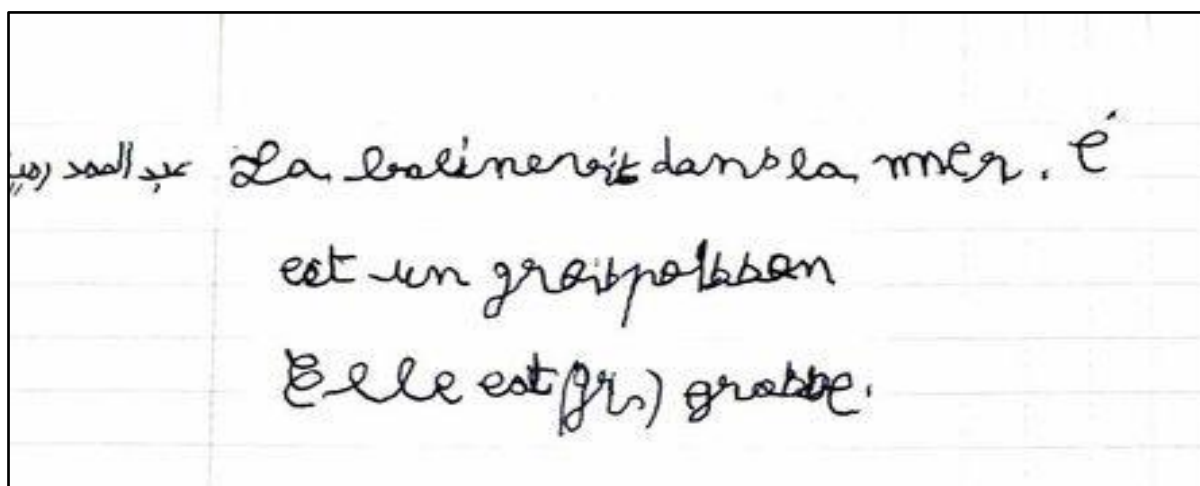 عبد الصمد La balinevit dansla mer. é
est un groispoisson
Elle est (gr) grosse.